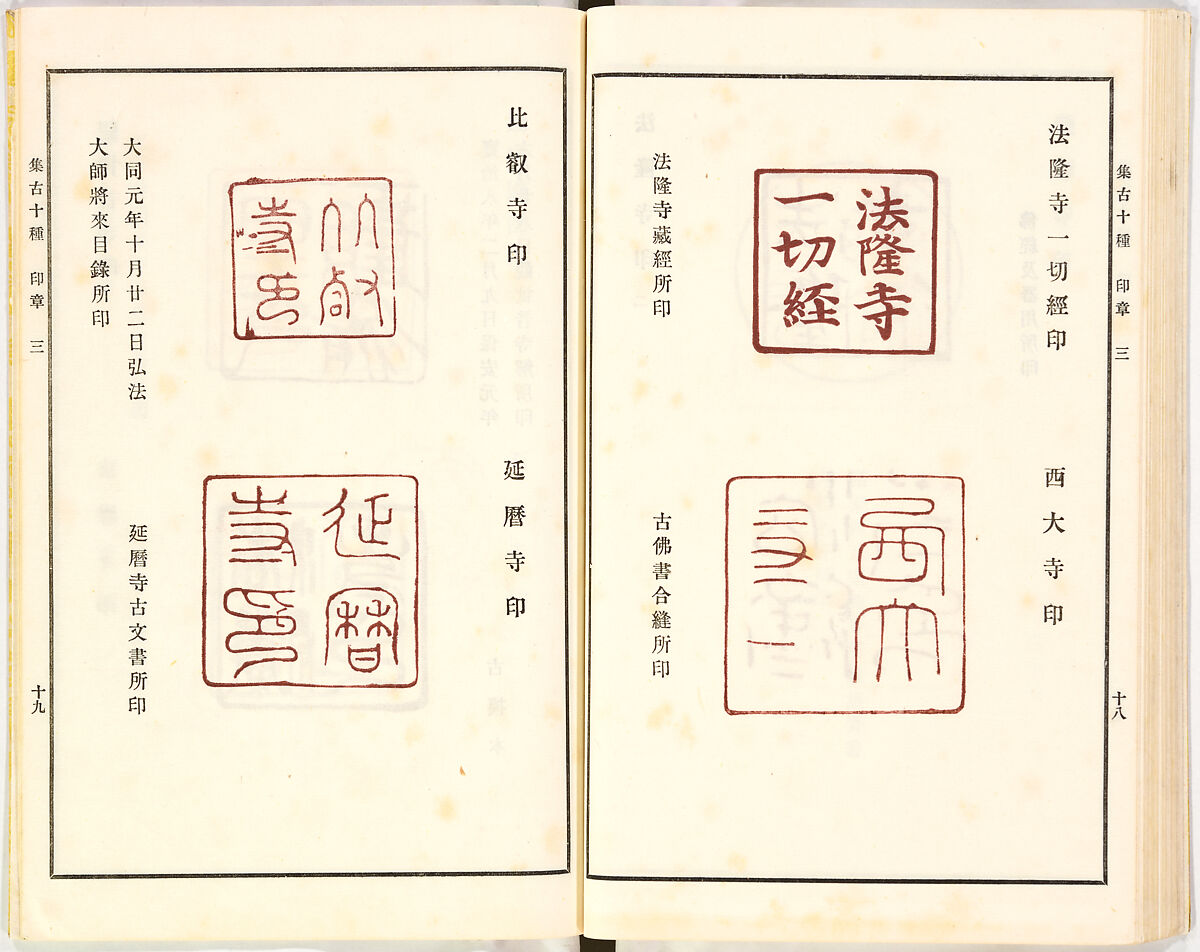 集古十種 印章 三
十八
法隆寺一切經印
法隆寺
一切經
法隆寺藏經所印
西大寺印
西大
古佛書合縫所印
比叡寺印
比叡
寺印
大同元年十月廿二日弘法
大師將來目錄所印
延曆寺印
延曆
寺印
延曆寺古文書所印
集古十種 印章 三
十九